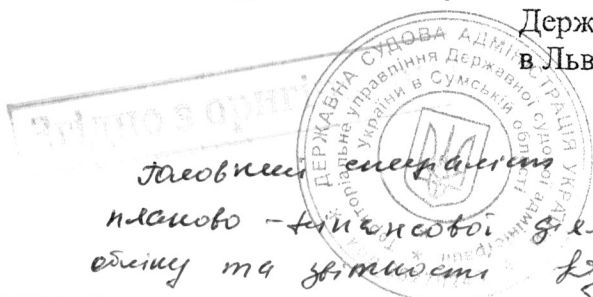 Держ
в Льв
ДЕРЖАВНА СУДОВА АДМІНІСТРАЦІЯ УКРАЇНИ
Територіальне управління Державної судової адміністрації
України в Сумській області
Згідно з оригі
Головний спеціаліст
планово-фінансової дія
обліку та звітности